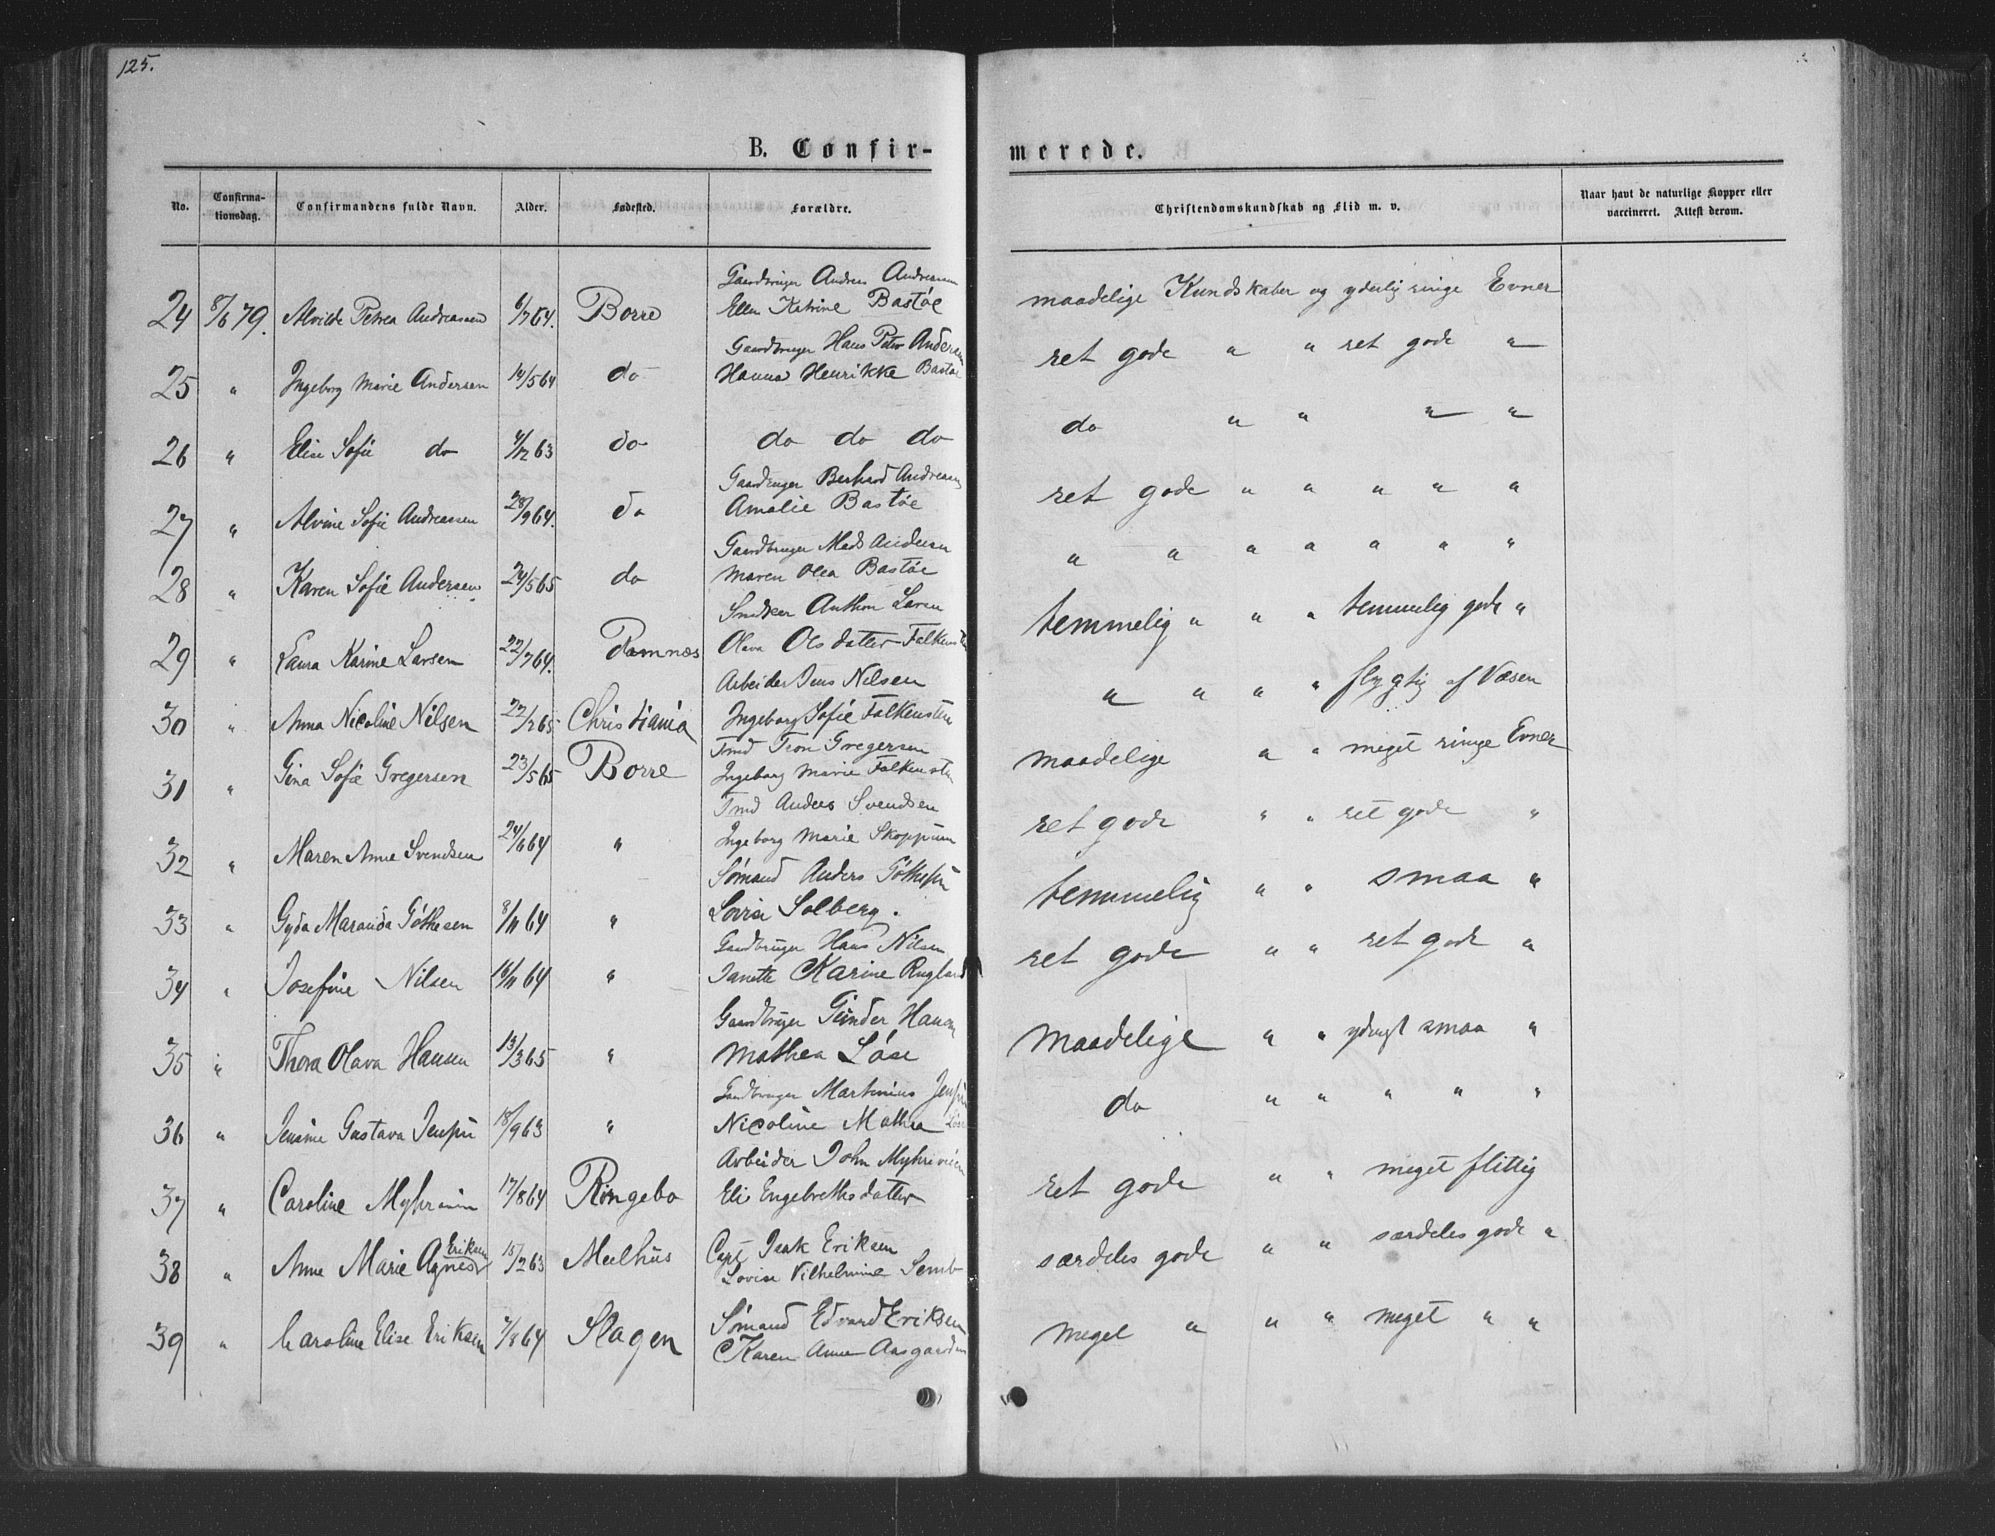 125.
B. Confir-
merede.
No.
Confirma-
tionsdag.
Confirmandens fulde Navn.
Alder.
Fødested.
Forældre.
Christendomskundskab og Flid m. v.
Naar havt de naturlige Kopper eller
vaccineret. Attest derom.
Gaardbruger Anders Andreasen
24 8/6 79. Alvilde Petrea Andreassen 6/7 64. Borre Ellen Katrine Bastøe maadelige Kundskaber og yderlig ringe Evner
Gaardbruger Hans Peter Andersen
25 " Ingeborg Marie Andersen 14/5 64 do Hanna Henrikke Bastøe ret gode " " ret gode "
26 " Elise Sofie do 4/12 63 do do do do do " " " "
Gaardbruger Berhard Andreasen
27 " Alvine Sofie Andreassen 28/9 64. do Amalie Bastøe ret gode " " " " "
Gaardbruger Mads Andersen
28 " Karen Sofie Andersen 24/5 65 do Maren Olea Bastøe " " " " " " "
Anthon Larsen
29 " Laura Karine Larsen 22/7 64. Ramnes Olava Olsdatter Falkensten temmelig " " " temmelig gode "
Arbeider Jens Nilsen
30 " Anna Nicoline Nilsen 22/2 65 Christiania Ingeborg Sofie Falkensten " " " " flygtig af Væsen
Tmd Tron Gregersen
31 " Gina Sofie Gregersen 23/5 65 Borre Ingeborg Marie Falkensten maadelige " " meget ringe Evner
Tmd Anders Svendsen
32 " Maren Anne Svendsen 24/6 64 " Ingeborg Marie Skoppum ret gode " " ret gode "
Sømand Anders Göthesen
33 " Gyda Maranda Göthesen 8/11 64 " Lovise Solberg. temmelig " " smaa "
Gaardbruger Hans Nilsen
34 " Josefine Nilsen 16/11 64 " Janette Karine Rugland ret gode " " ret gode "
Gaardbruger Gunder Hansen
35 " Thora Olava Hansen 13/3 65 " Mathea Løse maadelige " " yderst smaa "
Gaardbruger Martinius Jensen
36 " Jensine Gustava Jensen 18/9 63 " Nicoline Mathea Løse do " " " " "
Arbeider John Myhrivein
37 " Caroline 17/8 64 Ringebo Eli Engebrethsdatter ret gode " " meget flittig
Eriksen
38 " Anne Marie Agnes 15/2 63 Meelhus Capt. Isak Eriksen særdeles gode " " særdeles gode "
Lovise Vilhelmine Semb
39 " Caroline Elise Eriksen 7/8 64 Slagen Sømand Edvard Eriksen meget " " " meget " "
Karen Anne Aasgaarden